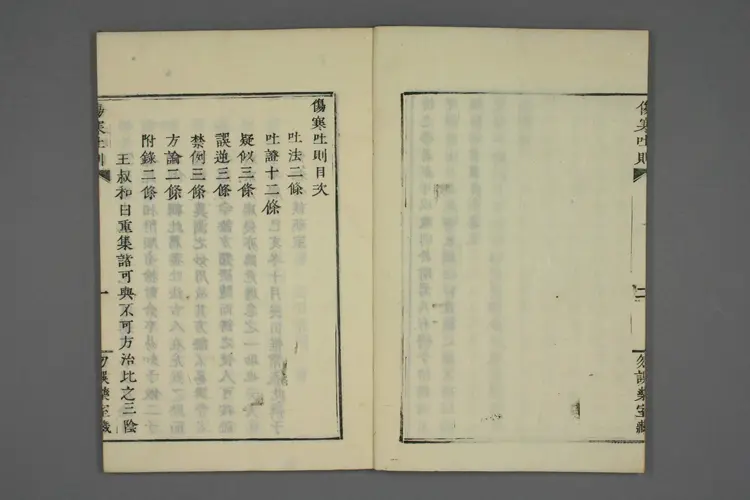 傷寒吐則
二
勿誤藥室藏
傷寒吐則目次
吐法二條
吐證十二條
疑似三條
誤逆三條
禁例三條
方論二條
附錄二條
王叔和曰重集諸可與不可方治比之三陰
傷寒吐則
一
勿誤藥室藏